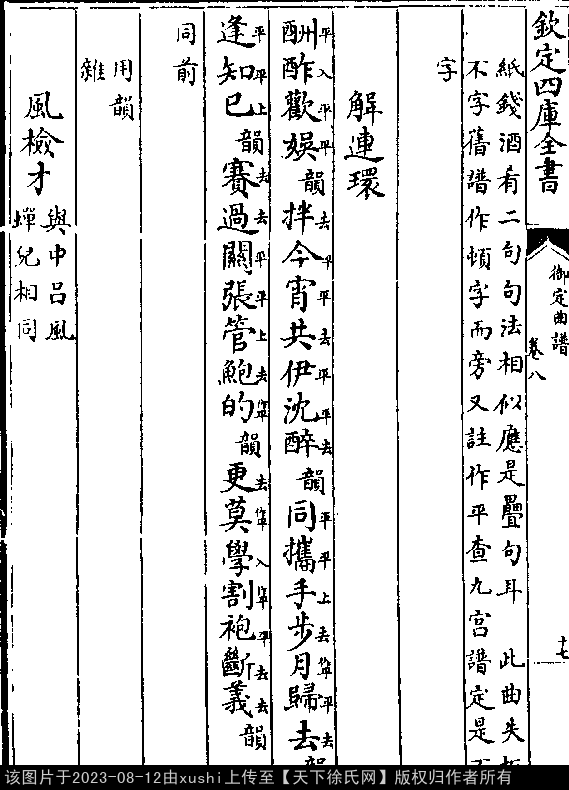 欽定四庫全書
御定曲譜
卷八
十七
紙錢酒肴二句句法相似應是疊句耳 此曲失
不字舊譜作頓字而旁又註作平查九宮譜定是
字
解連環
平入平平 去平平去平平去 平平上去作平平去
酬酢歡娛韻拌今宵共伊沈醉韻同攜手步月歸去韻
平平上 去去平平上去作平 去作平入作平平去去
逢知已韻賽過關張管鮑的韻更莫學割袍斷義韻
同前
用韻
雜
風檢才
與中呂風
蟬兒相同
该图片于2023-08-12由xushi上传至【天下徐氏网】版权归作者所有